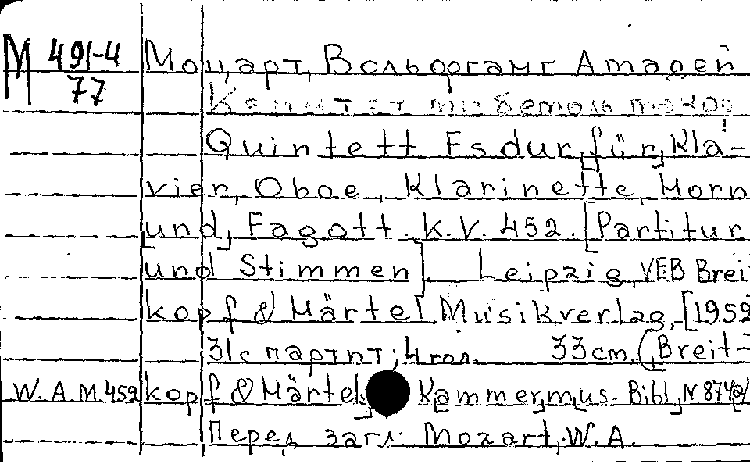 М 491-4 Моцарт, Вольфганг Амадей
77 Квинтет ми бемоль мажор
Quintett Esdur [für] Kla-
vier, Oboe, Klarinette, Horn
[und] Fagott. K.V. 452. [Partitur
und Stimmen] Leipzig, VEB Brei
kopf & Härtel Musikverlag, [1952
31с партит; 4 гол. 33cm. (Breit-
W.A.M.452 kopf & Härtels Kammermus. Bibl, N
Перед загл: Mozart, W.A.